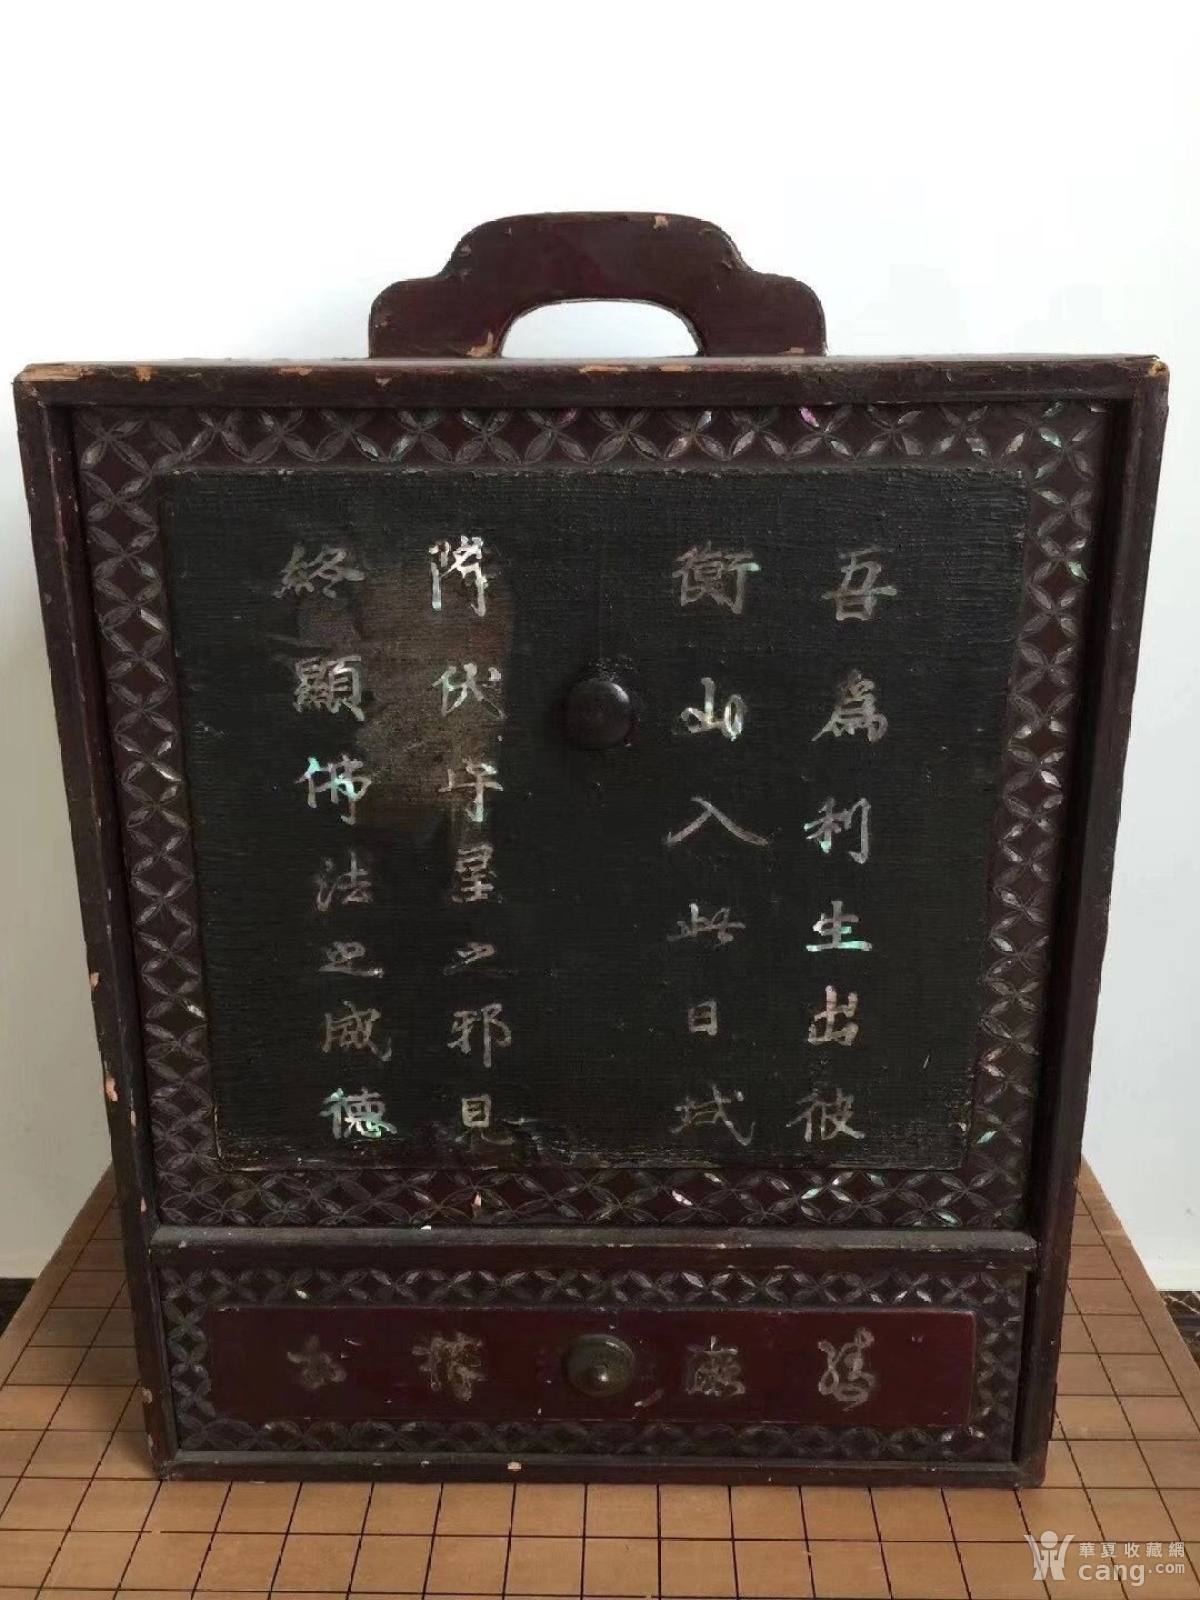 吾為利生出彼
衡山入此日域
降伏守屋之邪見
終顯佛法之威德
華夏收藏網
cang.com